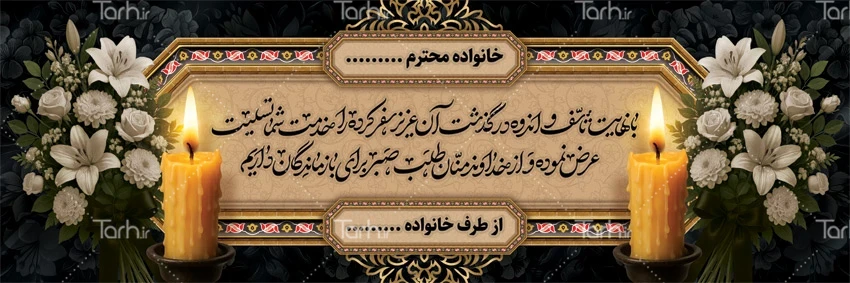 خانواده محترم .........
با نهایت تأسف و اندوه درگذشت آن عزیز سفر کرده را خدمت شما تسلیت
عرض نموده و از خداوند منان طلب صبر برای بازماندگان داریم
از طرف خانواده .........
Tarh.ir
Tarh.ir
Tarh.ir
Tarh.ir
Tarh.ir
Tarh.ir